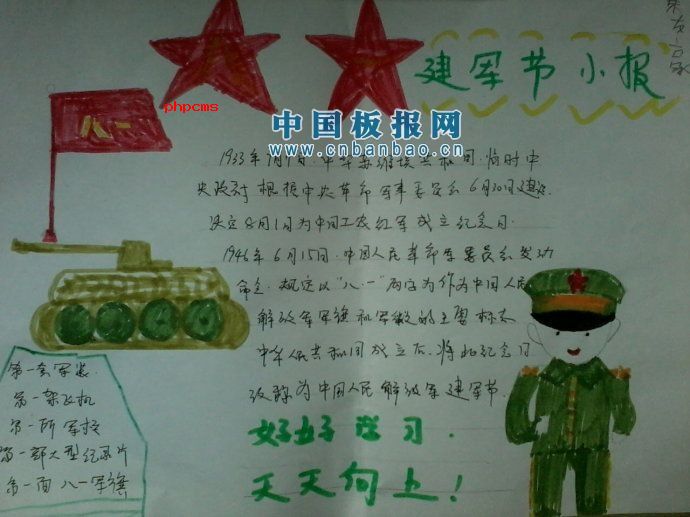 建军节小报
八一
phpcms
中国板报网
www.cnbanbao.cn
1933年7月1日,中华苏维埃共和国临时中
央政府根据中央革命军事委员会6月30日建议
决定8月1日为中国工农红军成立纪念日.
1946年6月15日,中国人民革命军委员会发动
命令,规定以"八.一"两字为作为中国人民
解放军军旗和军徽的主要标志
中华人民共和国成立后,将此纪念日
改称为中国人民解放军建军节.
第一套军装
第一架飞机
第一所军校
第一部大型纪录片
第一面八一军旗
好好学习.
天天向上!